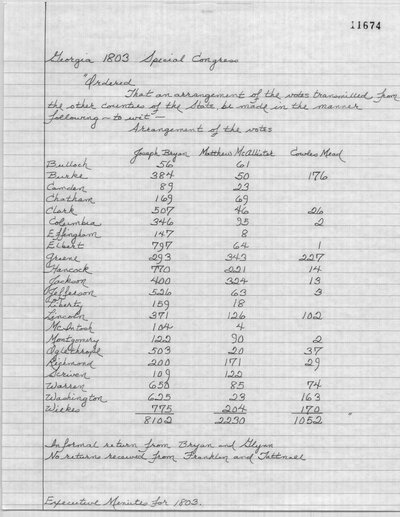 11674
Georgia 1803 Special Congress
"Ordered
That an arrangement of the votes transmitted from
the other counties of the State, be made in the manner
following - to wit -
Arrangement of the votes
Joseph Bryan Matthew McAllister Cowles Mead
Bulloch 56 61
Burke 384 50 176
Camden 89 23
Chatham 169 69
Clark 507 46 26
Columbia 346 95 2
Effingham 147 8
Elbert 797 64 1
Greene 293 343 227
Hancock 770 221 14
Jackson 400 324 13
Jefferson 526 63 3
Liberty 159 18
Lincoln 371 126 102
McIntosh 104 4
Montgomery 122 90 2
Oglethorpe 503 20 37
Richmond 200 171 29
Scriven 109 122
Warren 650 85 74
Washington 625 23 163
Wilkes 775 204 170 "
8102 2230 1052
Informal return from Bryan and Glynn
No returns received from Franklin and Tattnall
Executive Minutes for 1803.